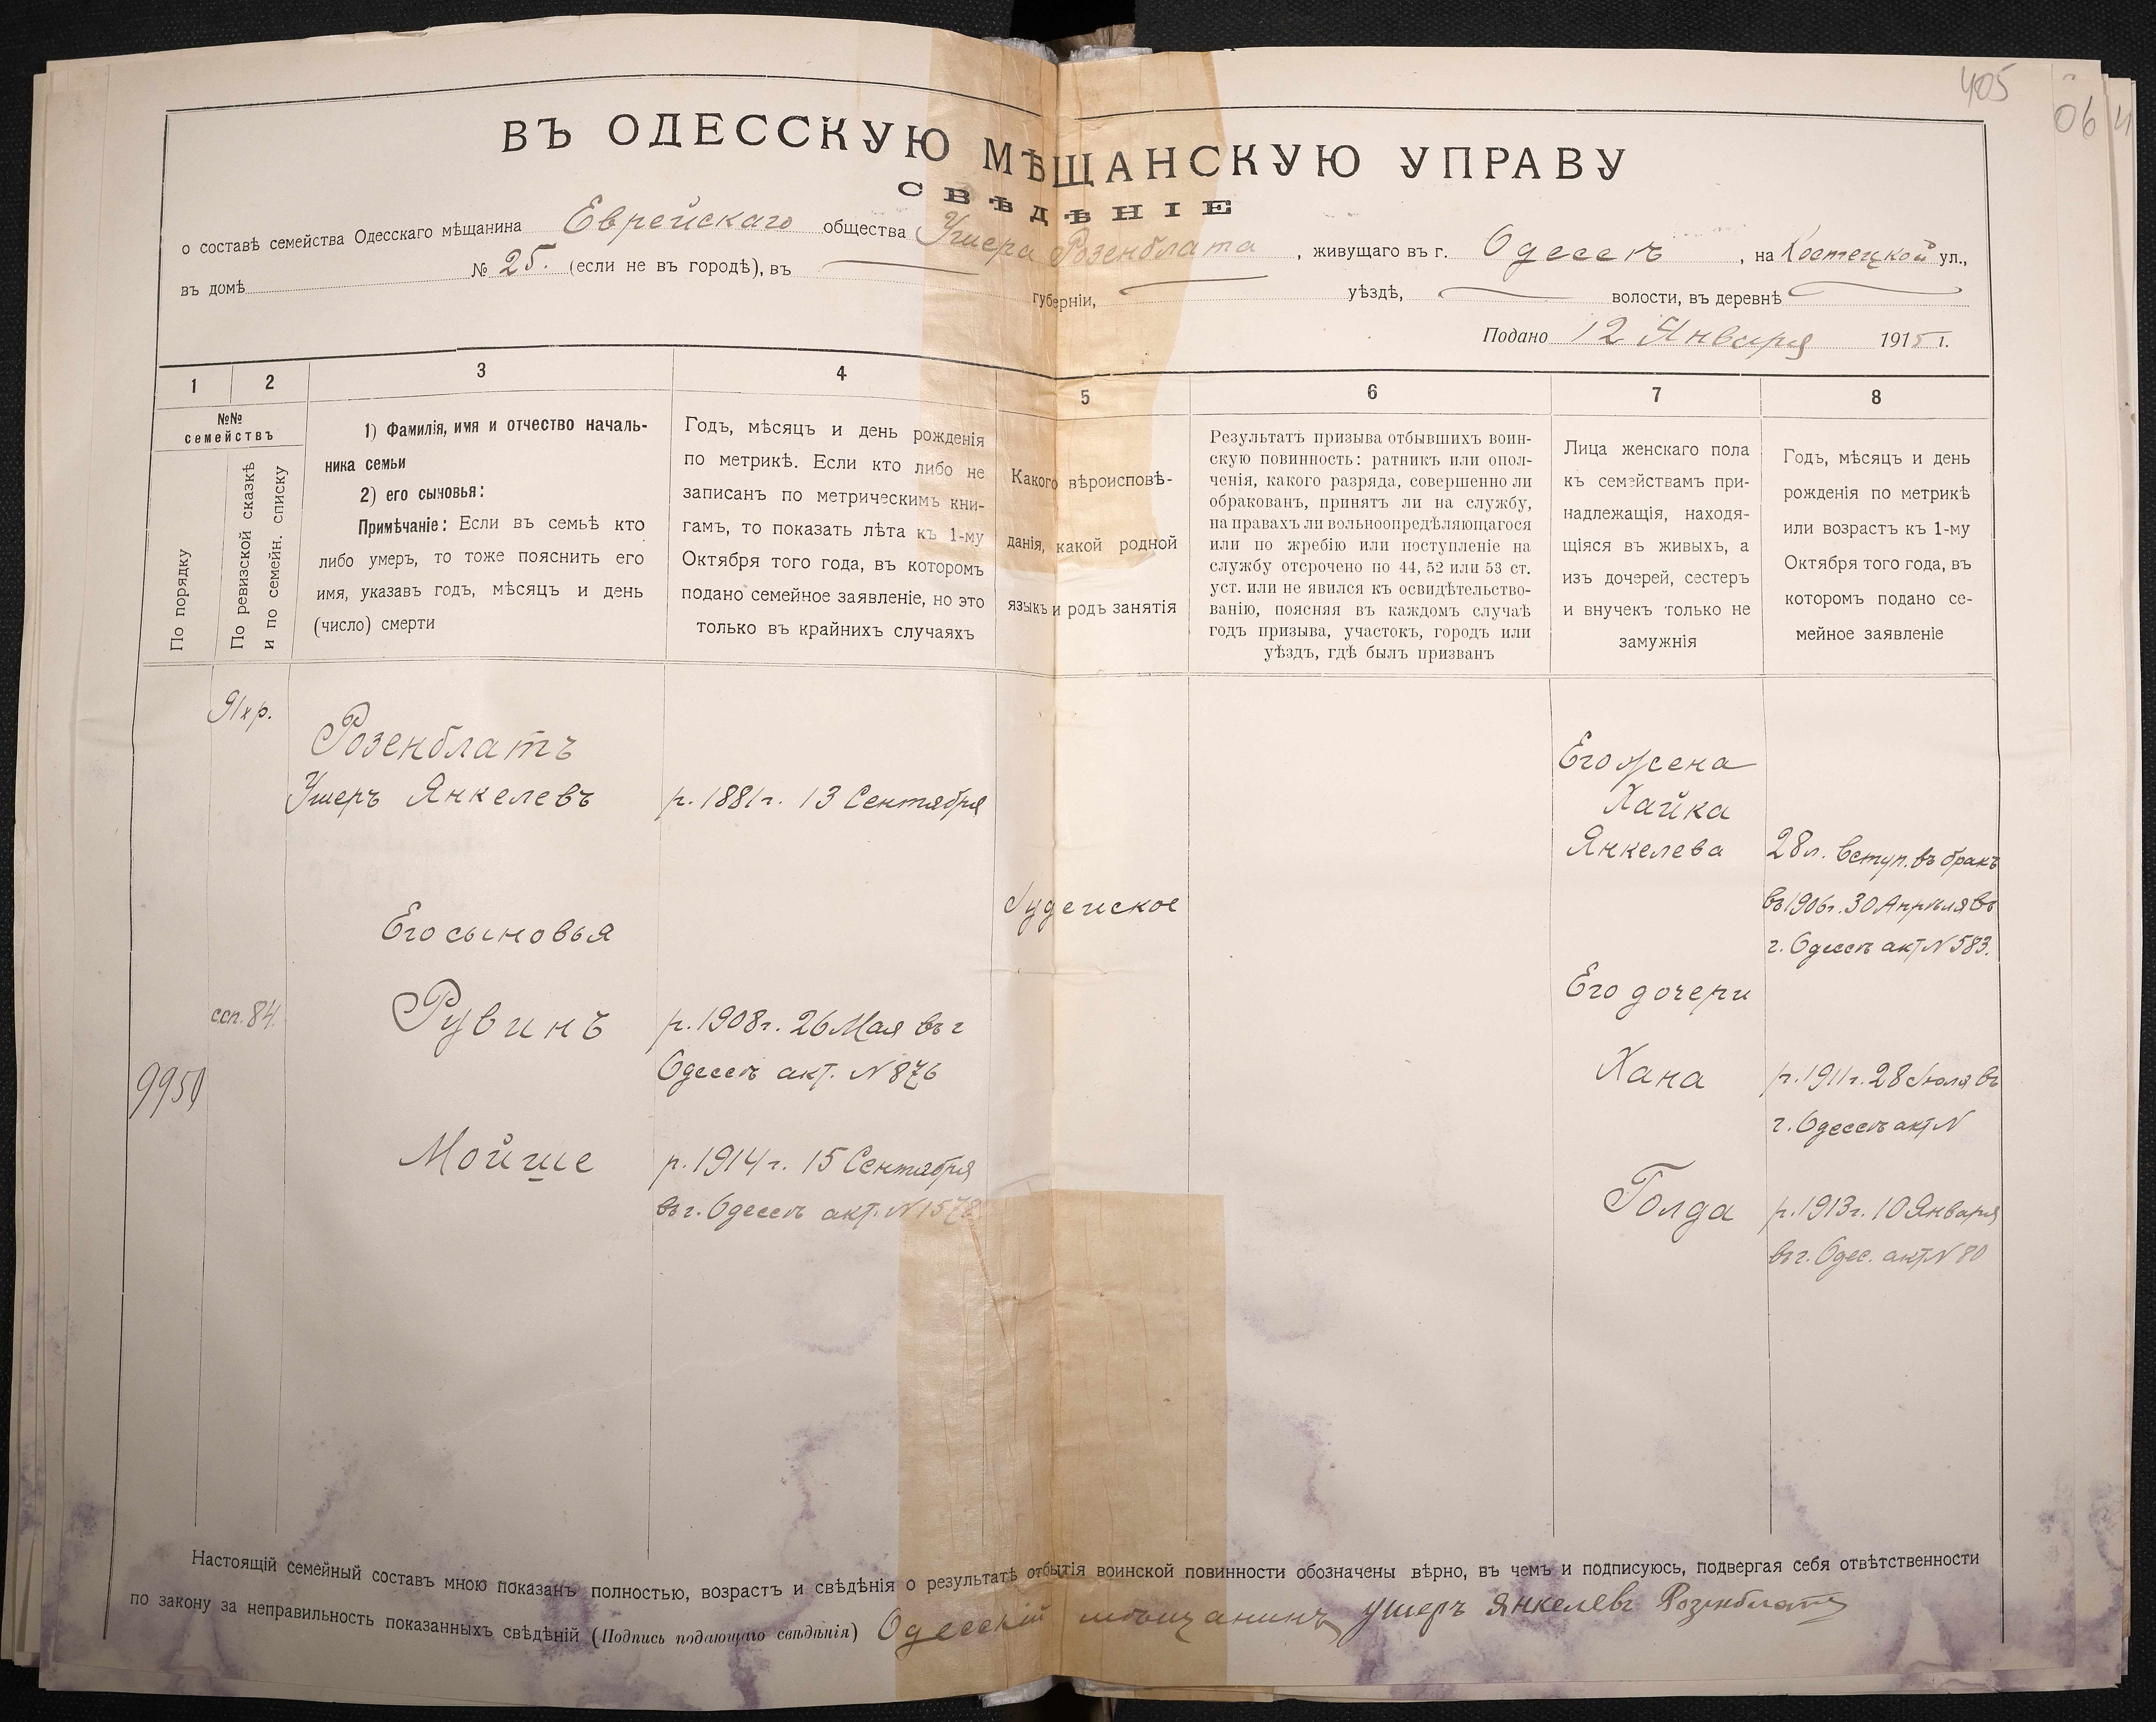 405
06
ВЪ ОДЕССКУЮ МѢЩАНСКУЮ УПРАВУ
СВѢДѢНІЕ
о составѣ семейства Одесскаго мѣщанина Еврейскаго общества Ушера Розенблата, живущаго въ г. Одессѣ, на Костецкой ул.,
въ домѣ № 25. (если не въ городѣ), въ губерніи, уѣздѣ, волости, въ деревнѣ
Подано 12 Января 1915 г.
1 2 3 4 5 6 7 8
№№
семействъ
По порядку
По ревизской сказкѣ
и по семейн. списку
1) Фамилія, имя и отчество началь-
ника семьи
2) его сыновья:
Примѣчаніе: Если въ семьѣ кто
либо умеръ, то тоже пояснить его
имя, указавъ годъ, мѣсяцъ и день
(число) смерти
Годъ, мѣсяцъ и день рожденія
по метрикѣ. Если кто либо не
записанъ по метрическимъ кни-
гамъ, то показать лѣта къ 1-му
Октября того года, въ которомъ
подано семейное заявленіе, но это
только въ крайнихъ случаяхъ
Какого вѣроисповѣ-
данія, какой родной
языкъ и родъ занятія
Результатъ призыва отбывшихъ воин-
скую повинность: ратникъ или опол-
ченія, какого разряда, совершенно ли
обракованъ, принятъ ли на службу,
на правахъ ли вольноопредѣляющагося
или по жребію или поступленіе на
службу отсрочено по 44, 52 или 53 ст.
уст. или не явился къ освидѣтельство-
ванію, поясняя въ каждомъ случаѣ
годъ призыва, участокъ, городъ или
уѣздъ, гдѣ былъ призванъ
Лица женскаго пола
къ семействамъ при-
надлежащія, находя-
щіяся въ живыхъ, а
изъ дочерей, сестеръ
и внучекъ только не
замужнія
Годъ, мѣсяцъ и день
рожденія по метрикѣ
или возрастъ къ 1-му
Октября того года, въ
которомъ подано се-
мейное заявленіе
Розенблатъ
Ушеръ Янкелевъ
р. 1881 г. 13 Сентября
Его жена
Хайка
Янкелева
28 л. вступ. въ бракъ
въ 1906 г. 30 Апрѣля въ
г. Одессѣ акт N 583.
Его сыновья
Іудейское
Его дочери
ссп. 84.
Рувинъ
р. 1908 г. 26 Мая въ г
Одессѣ акт. N 876
9950
Хана
р. 1911 г. 28 Іюля въ
г. Одессѣ акт N
Мойше
р. 1914 г. 15 Сентября
въ г. Одессѣ акт. N 1578
Голда
р. 1913 г. 10 Января
въ г. Одес. акт N 80
Настоящій семейный составъ мною показанъ полностью, возрастъ и свѣдѣнія о результатѣ отбытія воинской повинности обозначены вѣрно, въ чемъ и подписуюсь, подвергая себя отвѣтственности
по закону за неправильность показанныхъ свѣдѣній (Подпись подающаго свѣдѣнія) Одесскій мѣщанинъ Ушеръ Янкелевъ Розенблатъ